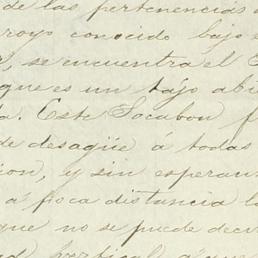 de las pertenencias
royo conocido bajo
se encuentra el
que es un tajo abi
a. Este Socabon f
de desagüe á todas
ion, y sin esperan
á poca distancia l
que no se puede deci
vertical